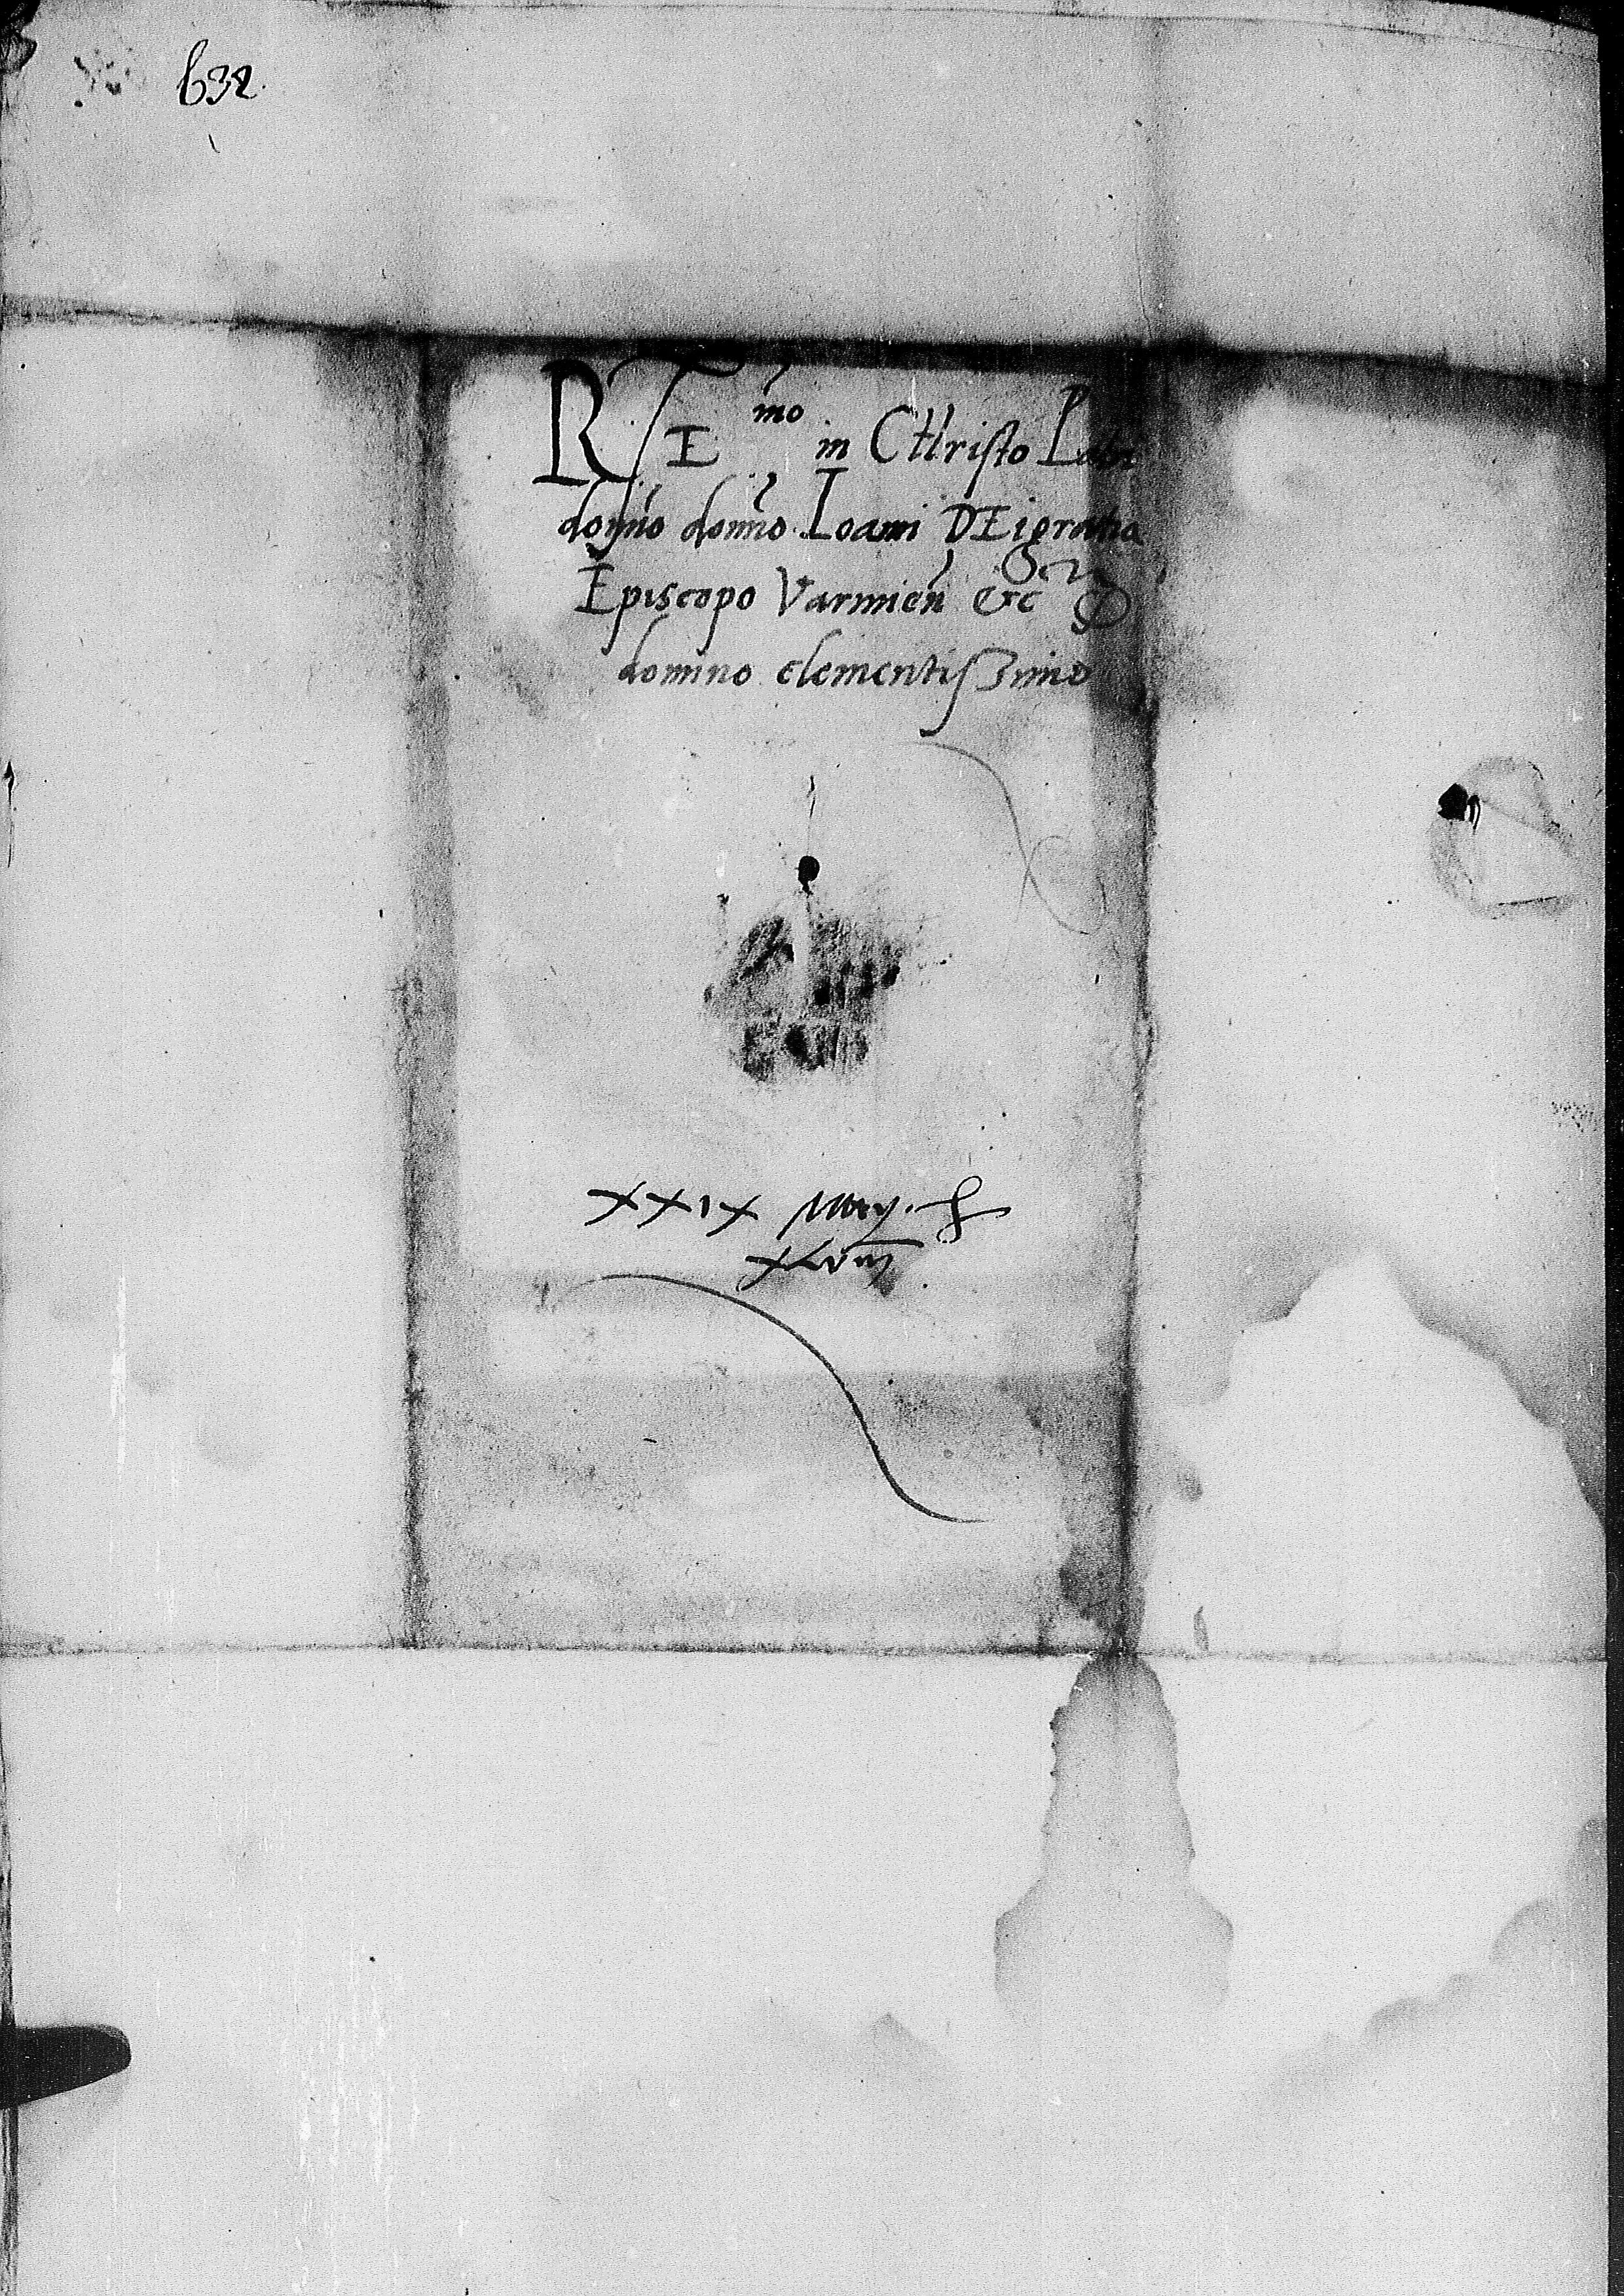 632.
R E mo in CHristo Patri
domno domno Ioanni DEi gratia
Episcopo Varmien etc
domino clementissimo
XXIX Maij.
XLVIII